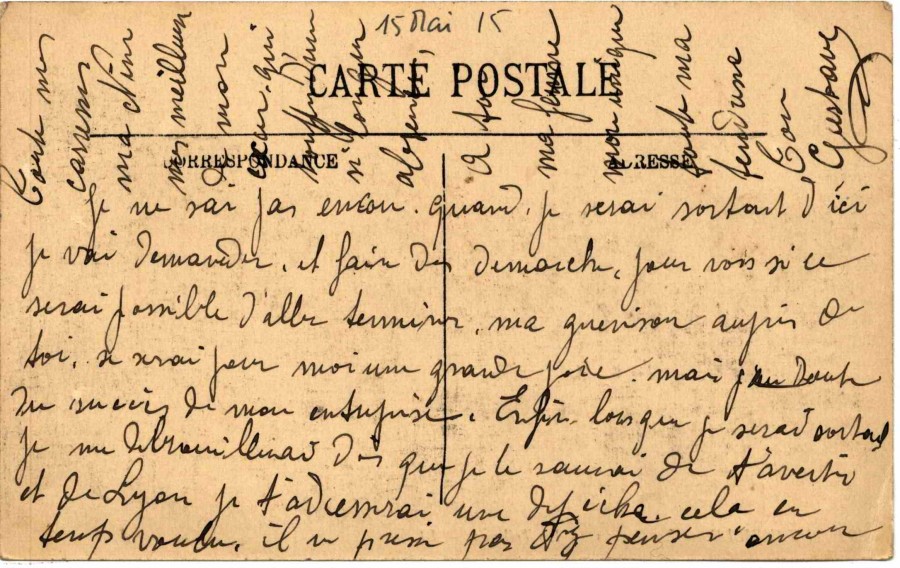 15 Mai 15
CARTE POSTALE
CORRESPONDANCE
ADRESSE
Je ne sai pas encor. quand, je serai sortant d'ici
je vai demander, et faire des demarche, pour voir si ce
serai possible d'aller terminer, ma guerison aupres de
toi, se serai pour moi une grande joie. mai j'en doute
du succès de mon entreprise. Enfin lorsque je serai sortant
je me debrouillerai dès que je le saurai de t'avertir
et de Lyon je t'adresserai une depeche, cela en
temps voulu, il ne presse pas d'y penser encor
Toute mes
caresses
ma
mes meilleurs
de mon
cœur qui
absent,
A toi
ma femme
mon unique
toute ma
tendresse
Ton
Gustave